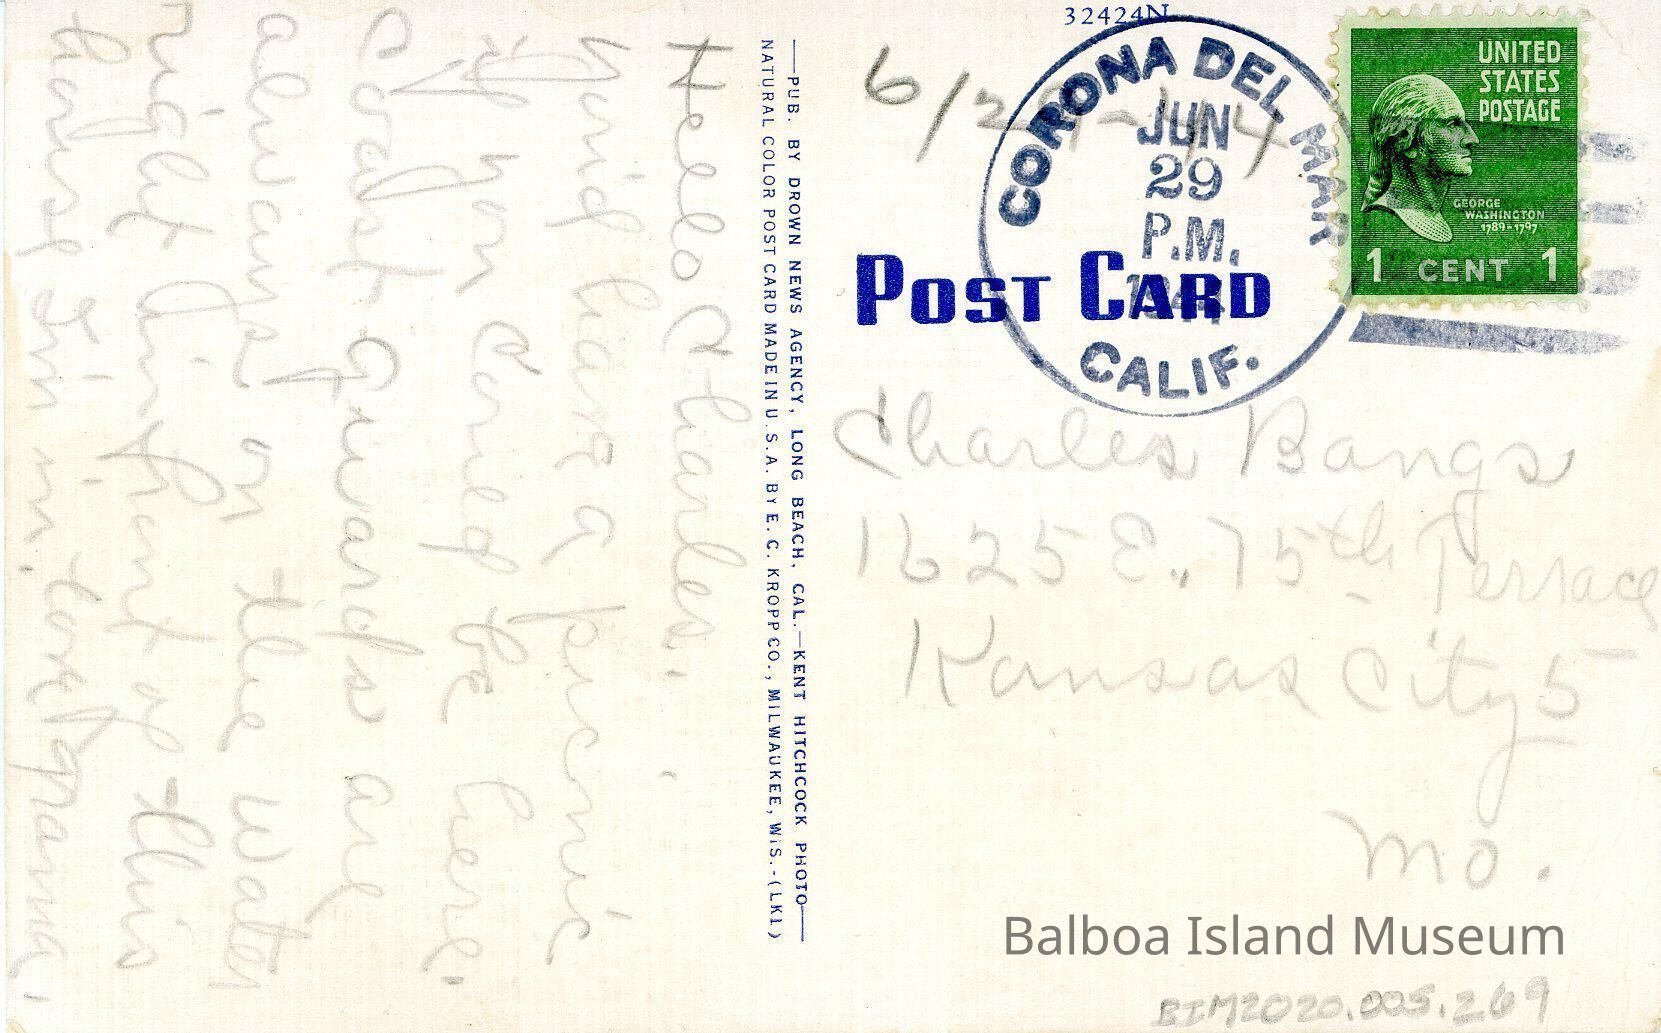 32424N
6/29-44
CORONA DEL MAR
JUN
29
P.M.
1944
CALIF.
UNITED
STATES
POSTAGE
GEORGE
WASHINGTON
1789-1797
1 CENT 1
POST CARD
Charles Bangs
1625 E. 75th Terrace
Kansas City 5
Mo.
—PUB. BY DROWN NEWS AGENCY, LONG BEACH, CAL.—KENT HITCHCOCK PHOTO—
NATURAL COLOR POST CARD MADE IN U. S. A. BY E. C. KROPP CO., MILWAUKEE, WIS.-(LKL)
Hello Charles.
You'd have a picnic
if you could be here.
Coast Guards are
always on the water
right in front of this
house I'm in.
Balboa Island Museum
BIM2020.005.269